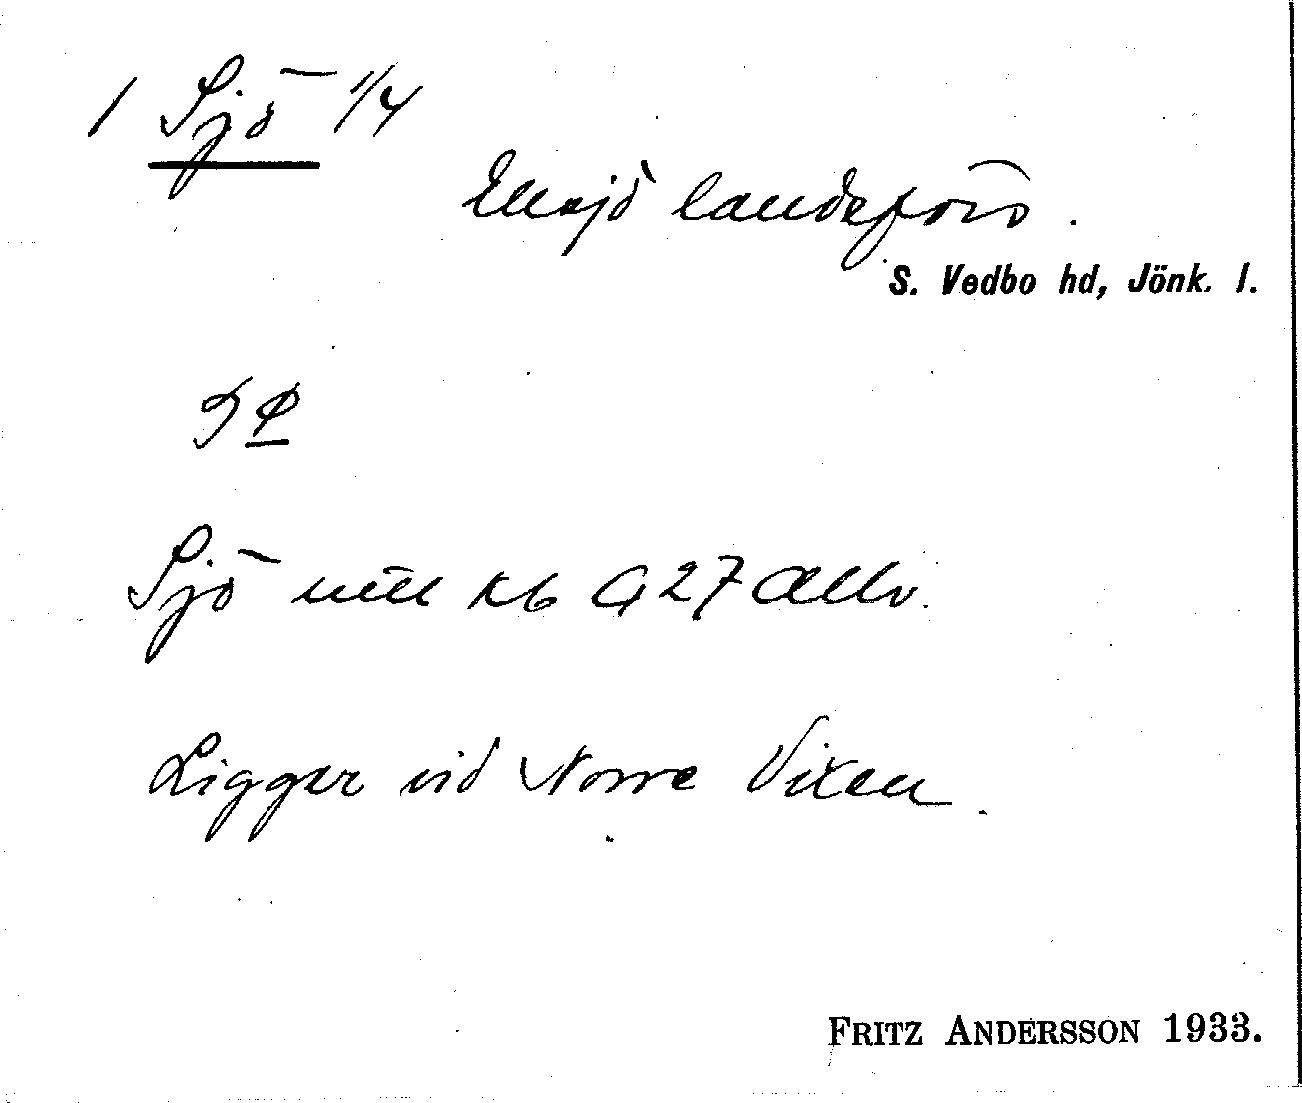 1 Sjö 1/4
Eksjö landsförs.
S. Vedbo hd, Jönk. l.
Sjö mtl kb G 27 Allv.
Ligger vid Norre Vixen.
FRITZ ANDERSSON 1933.